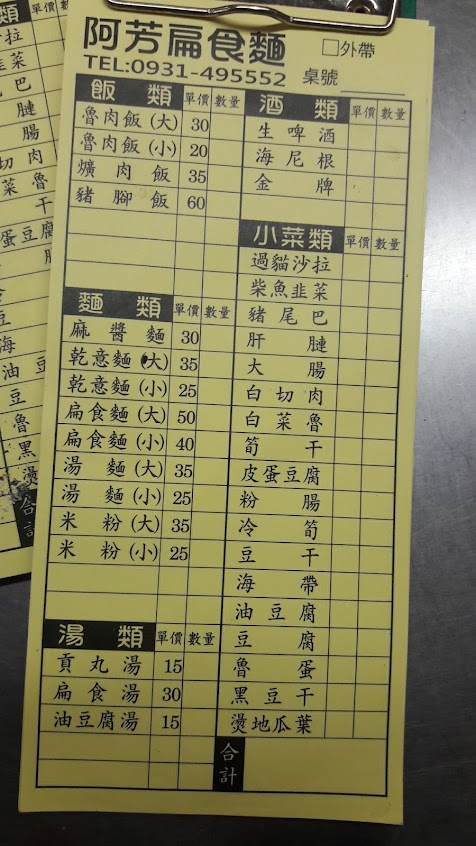 阿芳扁食麵
□外帶
TEL:0931-495552 桌號
飯類 單價 數量
魯肉飯(大) 30
魯肉飯(小) 20
爌肉飯 35
豬腳飯 60
麵類 單價 數量
麻醬麵 30
乾意麵(大) 35
乾意麵(小) 25
扁食麵(大) 50
扁食麵(小) 40
湯麵(大) 35
湯麵(小) 25
米粉(大) 35
米粉(小) 25
湯類 單價 數量
貢丸湯 15
扁食湯 30
油豆腐湯 15
酒類 單價 數量
生啤酒
海尼根
金牌
小菜類 單價 數量
過貓沙拉
柴魚韭菜
豬尾巴
肝腱
大腸
白切肉
白菜魯
筍干
皮蛋豆腐
粉腸
冷筍
豆干
海帶
油豆腐
豆腐
魯蛋
黑豆干
燙地瓜葉
合計